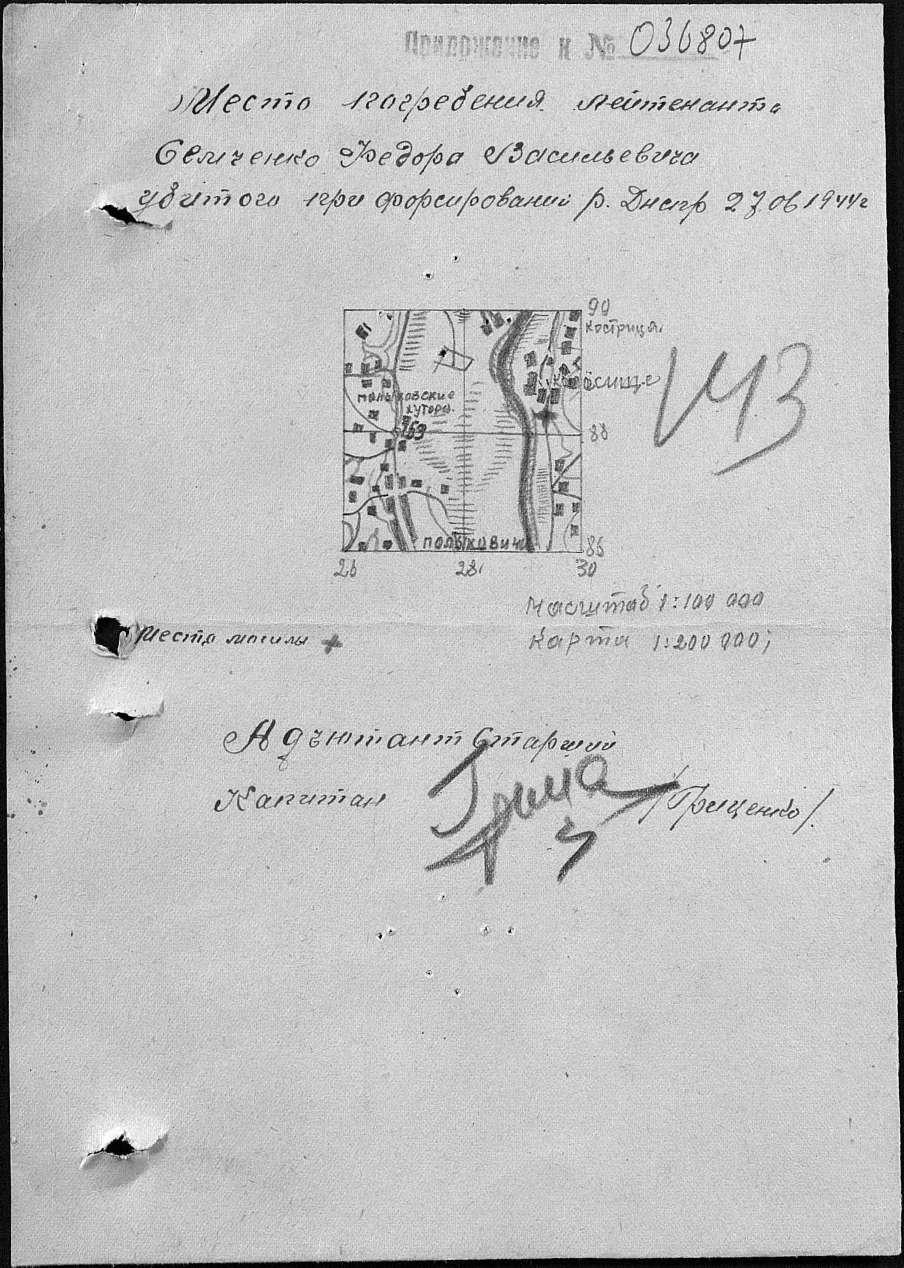 Приложение к № 036807
Место погребения лейтенанта
Семченко Федора Васильевича
убитого при форсировании р. Днепр 27.06 1944г
90
Кострицы
полыковские
хутора
153
88
полыковичи
86
26 28 30
143
Масштаб 1:100 000
Карта 1:200 000;
Место могилы +
Адъютант Старший
Капитан Грица /Гриценко/.